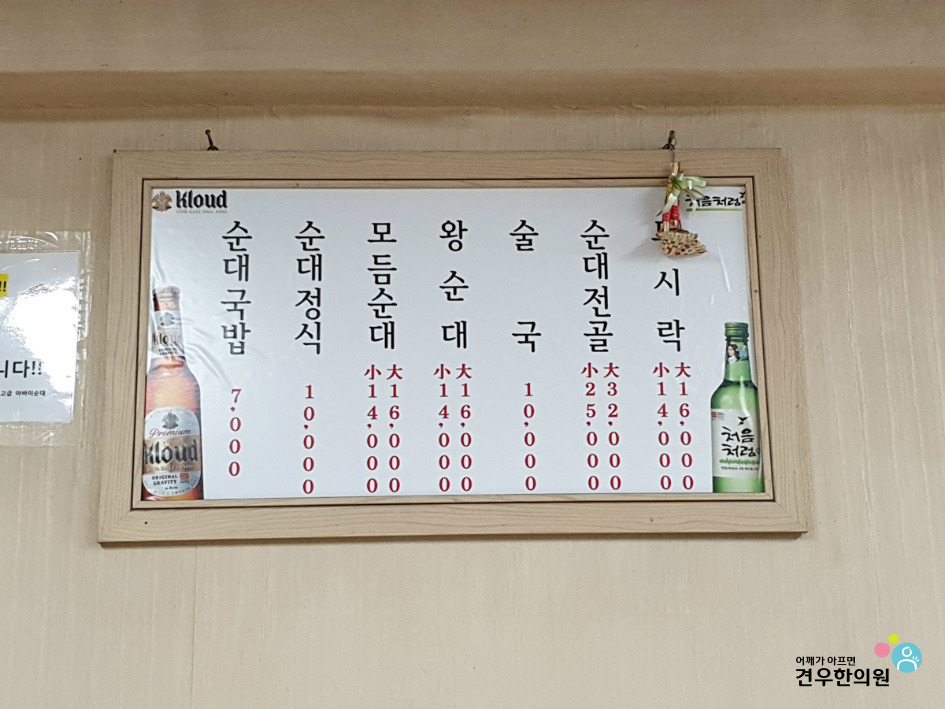 Kloud
처음처럼
순대국밥 7,000
순대정식 10,000
모듬순대 大16,000 小14,000
왕순대 大16,000 小14,000
술국 10,000
순대전골 大32,000 小25,000
시락 大16,000 小14,000
Premium
Kloud
ORIGINAL
GRAVITY
처음
처럼
!!
니다!!
고급 아바이순대
어깨가 아프면
견우한의원